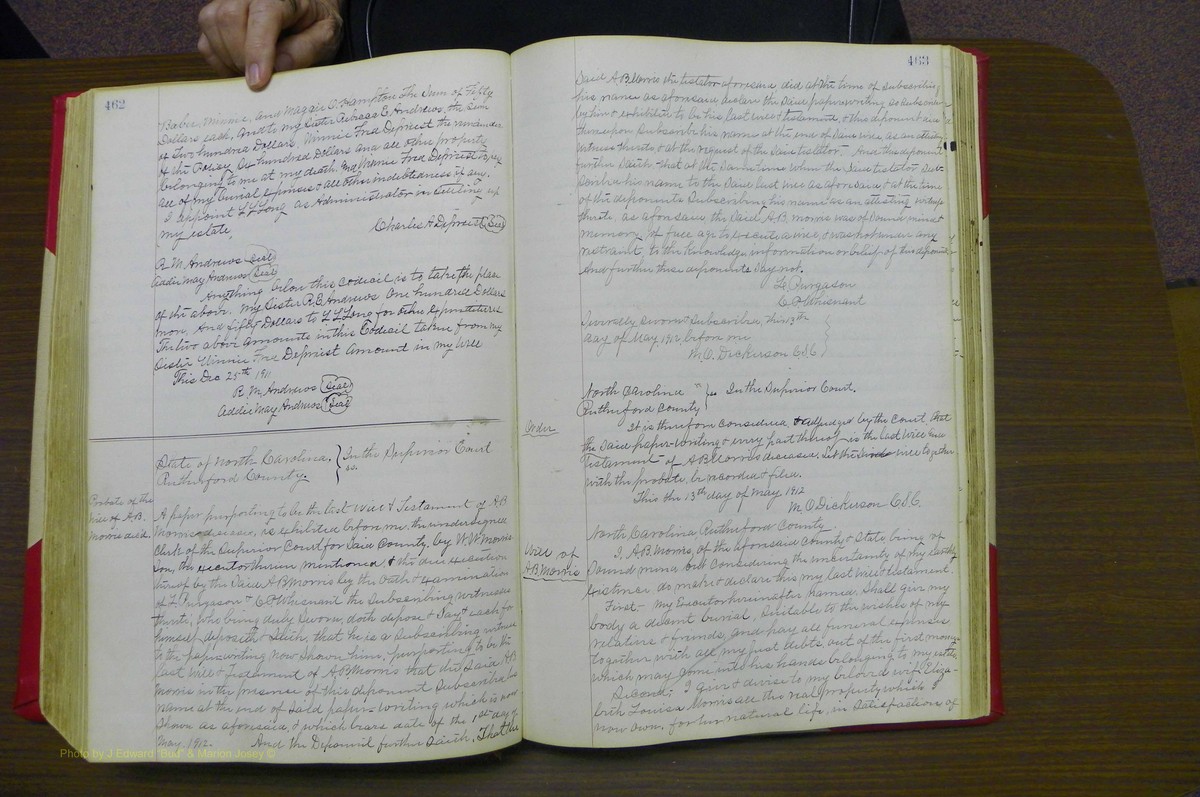 462
Babe, Minnie, and Maggie C. Hampton the Sum of Fifty
Dollars each, And to my Sister Rebecca E. Andrews, the sum
of Two hundred Dollars, Minnie Fra Depriest the remainder
of the Policy. One hundred Dollars and all other property
belonging to me at my death. And Minnie Fra Depriest to pay
all of my burial expenses & all other indebtedness if any.
I appoint L. L. Long as Administrator in settling up
my estate.
Charles A Depriest (Seal)
R. M. Andrews (Seal)
Addie May Andrews (Seal)
Anything below this Codicil is to take the place
of the above. My Sister R. E. Andrews One hundred Dollars
more, And Fifty Dollars to L L Long for other expenditures
The two above amounts in this Codicil taken from my
Sister Minnie Fra Depriest Amount in my Will
This Dec 25th 1911
R. M. Andrews (Seal)
Addie May Andrews (Seal)
State of North Carolina.
In the Superior Court
Rutherford County.
Probate of the
Will of A.B.
Morris decd.
A paper purporting to be the last Will & Testament of A.B.
Morris deceased, is exhibited before me, the undersigned
Clerk of the Superior Court for said County, by W. W. Morris
Son, the executor therein mentioned & the due execution
thereof by the said A B Morris by the oath & examination
of F. Purgason & C. P. Whisnant the subscribing witnesses
thereto; who being duly sworn, doth depose & say & each for
himself deposeth & saith, that he is a subscribing witness
to the paper writing now shown him, purporting to be the
last Will & Testament of A. B. Morris that the said A. B.
Morris in the presence of this deponent subscribed his
name at the end of said paper-writing which is now
shown as aforesaid, & which bears date of the 1st day of
May, 1912. And the Deponent further saith, That the
463
Said A B Morris the testator aforesaid did, at the time of subscribing
his name as aforesaid declare the said paper writing so subscribed
by him & exhibited to be his last will & testament, & this deponent did
thereupon subscribe his name at the end of said will as an attesting
witness thereto & at the request of the said testator. And this deponent
further saith that at the same time when the said testator sub-
scribed his name to the said last will as aforesaid & at the time
of the deponents subscribing his name as an attesting witness
thereto as aforesaid the said A. B. Morris was of sound mind &
memory, of full age to execute a will, & was not under any
restraint to the knowledge information or belief of this deponent
And further these deponents say not.
F. Purgason
C. P. Whisnant
Severally sworn & subscribed, this 13th
day of May 1912, before me
M. O. Dickerson C. S. C.
North Carolina
In the Superior Court.
Rutherford County
Order
It is therefore considered & adjudged by the Court that
the said paper-writing & every part thereof is the last Will and
Testament of A B Morris deceased, let the same will together
with the probate, be recorded & filed.
This the 13th day of May 1912
M. O. Dickerson C. S. C.
Will of
A. B. Morris
North Carolina, Rutherford County
I, A. B. Morris, of the aforesaid County & State being of
sound mind but considering the uncertainty of my earthly
existence do make & declare this my last Will & testament
First - My Executor hereinafter named, shall give my
body a decent burial, suitable to the wishes of my
relatives & friends, and pay all funeral expenses
together with all my just debts, out of the first money
which may come into his hands belonging to my estate
Second: I give & devise to my beloved wife Eliza-
beth Louisa Morris all the real property which I
now own, for her natural life, in satisfaction of
Photo by J Edward "Bud" & Marion Josey ©